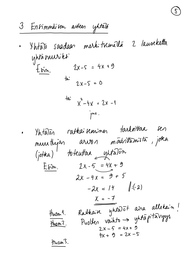 3 Ensimmäisen asteen yhtälö
• Yhtälö saadaan merkitsemällä 2 lauseketta
yhtäsuuriksi
Esim. 2x-5 = 4x+9
tai 2x-5 = 0
tai x²-4x = 2x-4
jne.
• Yhtälön ratkaiseminen tarkoittaa sen
muuttujan arvon määrittämistä, joka
(jotka) toteuttaa yhtälön
Esim. 2x-5 = 4x+9
2x-4x = 9+5
-2x = 14 |:(-2)
x = -7
Huom! Ratkaise yhtälöt aina allekain!
Huom! Puolten vaihto → yhtäpitävyys
2x-5 = 4x+9
4x+9 = 2x-5
Huom!